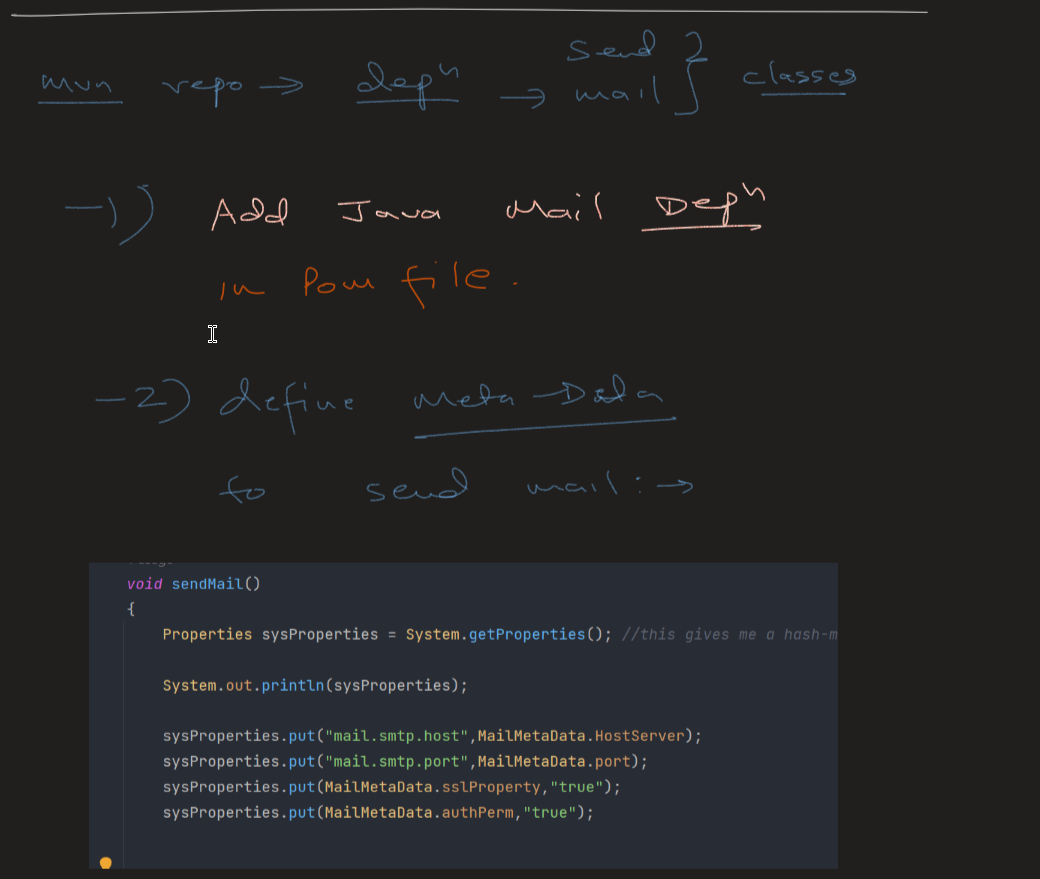 mvn repo → depⁿ → send mail } classes
—1) Add Java Mail Depⁿ
in Pom file.
—2) define Meta-Data
to send mail :→
void sendMail()
{
Properties sysProperties = System.getProperties(); //this gives me a hash-m
System.out.println(sysProperties);
sysProperties.put("mail.smtp.host",MailMetaData.HostServer);
sysProperties.put("mail.smtp.port",MailMetaData.port);
sysProperties.put(MailMetaData.sslProperty,"true");
sysProperties.put(MailMetaData.authPerm,"true");